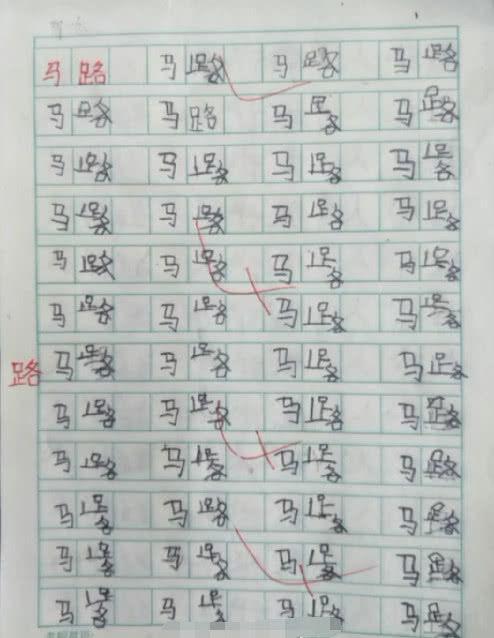 马 路 马 路 马 路 马 路
马 路 马 路 马 路 马 路
马 路 马 路 马 路 马 路
马 路 马 路 马 路 马 路
马 路 马 路 马 路 马 路
马 路 马 路 马 路 马 路
路 马 路 马 路 马 路 马 路
马 路 马 路 马 路 马 路
马 路 马 路 马 路 马 路
马 路 马 路 马 路 马 路
马 路 马 路 马 路 马 路
马 路 马 路 马 路 马 路